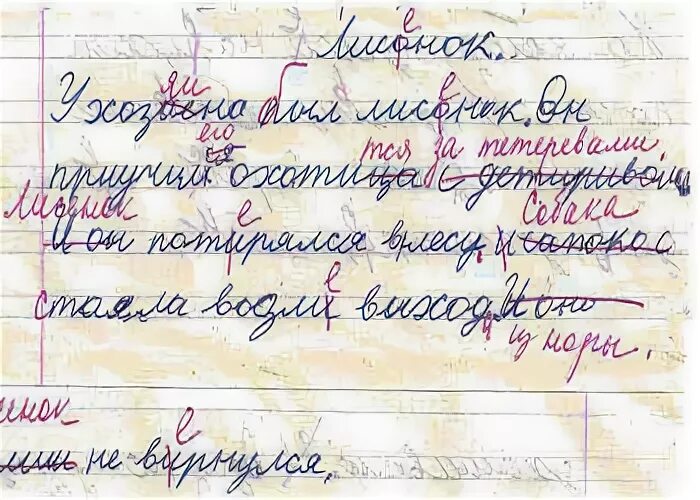 Лисонок.
е
яи
Ухозаена был лисонок. Он
е
его
тся за тетеревами.
приучил охотица с
Лисенок
е
Собака
и он потирялся в лесу, и сапока с
е
стаяла возли выход И он
из норы.
енок
е
не вирнулся.